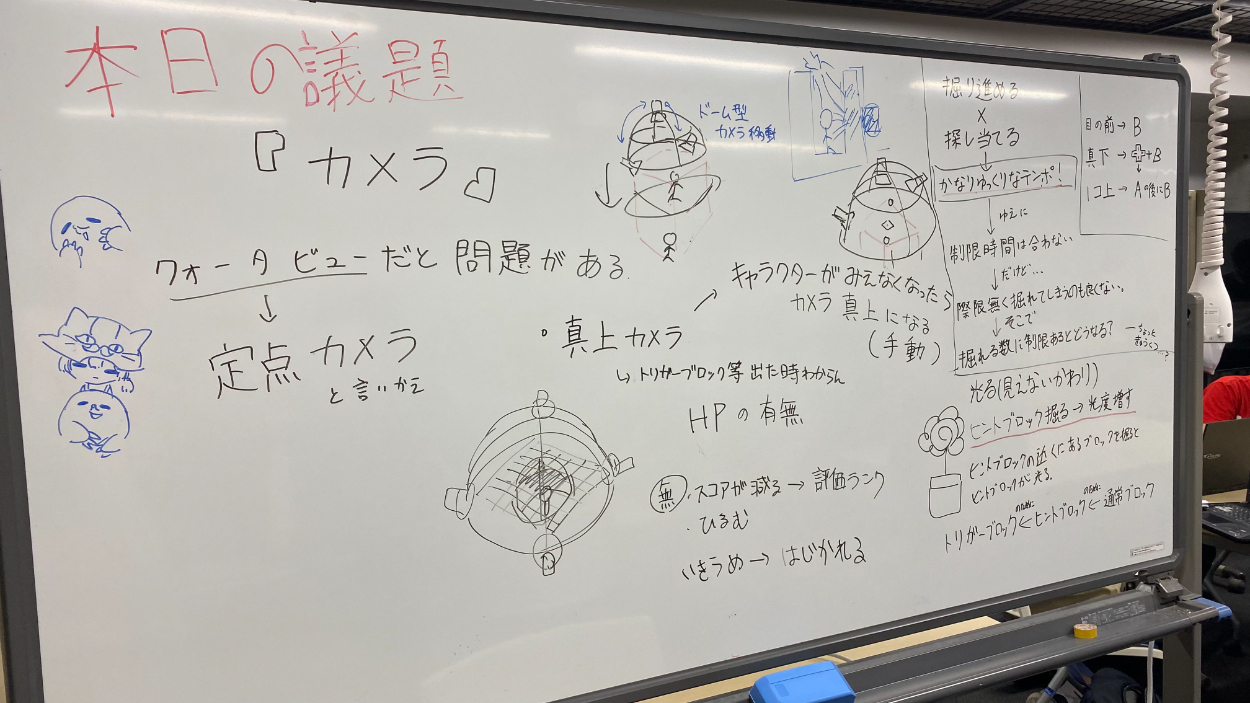 本日の議題
『カメラ』
クォータビューだと問題がある
↓
定点カメラ
と言いかえ
ドーム型
カメラ移動
・真上カメラ
↳トリガーブロック等出た時わからん
→キャラクターがみえなくなったら
カメラ真上になる
(手動)
HPの有無
無・スコアが減る→評価ランク
・ひるむ
いきうめ→はじかれる
掘り進める
×
探し当てる
↓
かなりゆっくりなテンポ!
↓ゆえに
制限時間は合わない
↓だけど…
際限無く掘れてしまうのも良くない。
↓そこで
掘れる数に制限あるとどうなる?
目の前→B
真下→+B
↓
1コ上→Aの後にB
光る(見えないかわり)
ヒントブロック掘る→光度増す
ヒントブロックの近くにあるブロックを掘ると
ヒントブロックが光る。
トリガーブロック←ヒントブロック←通常ブロック